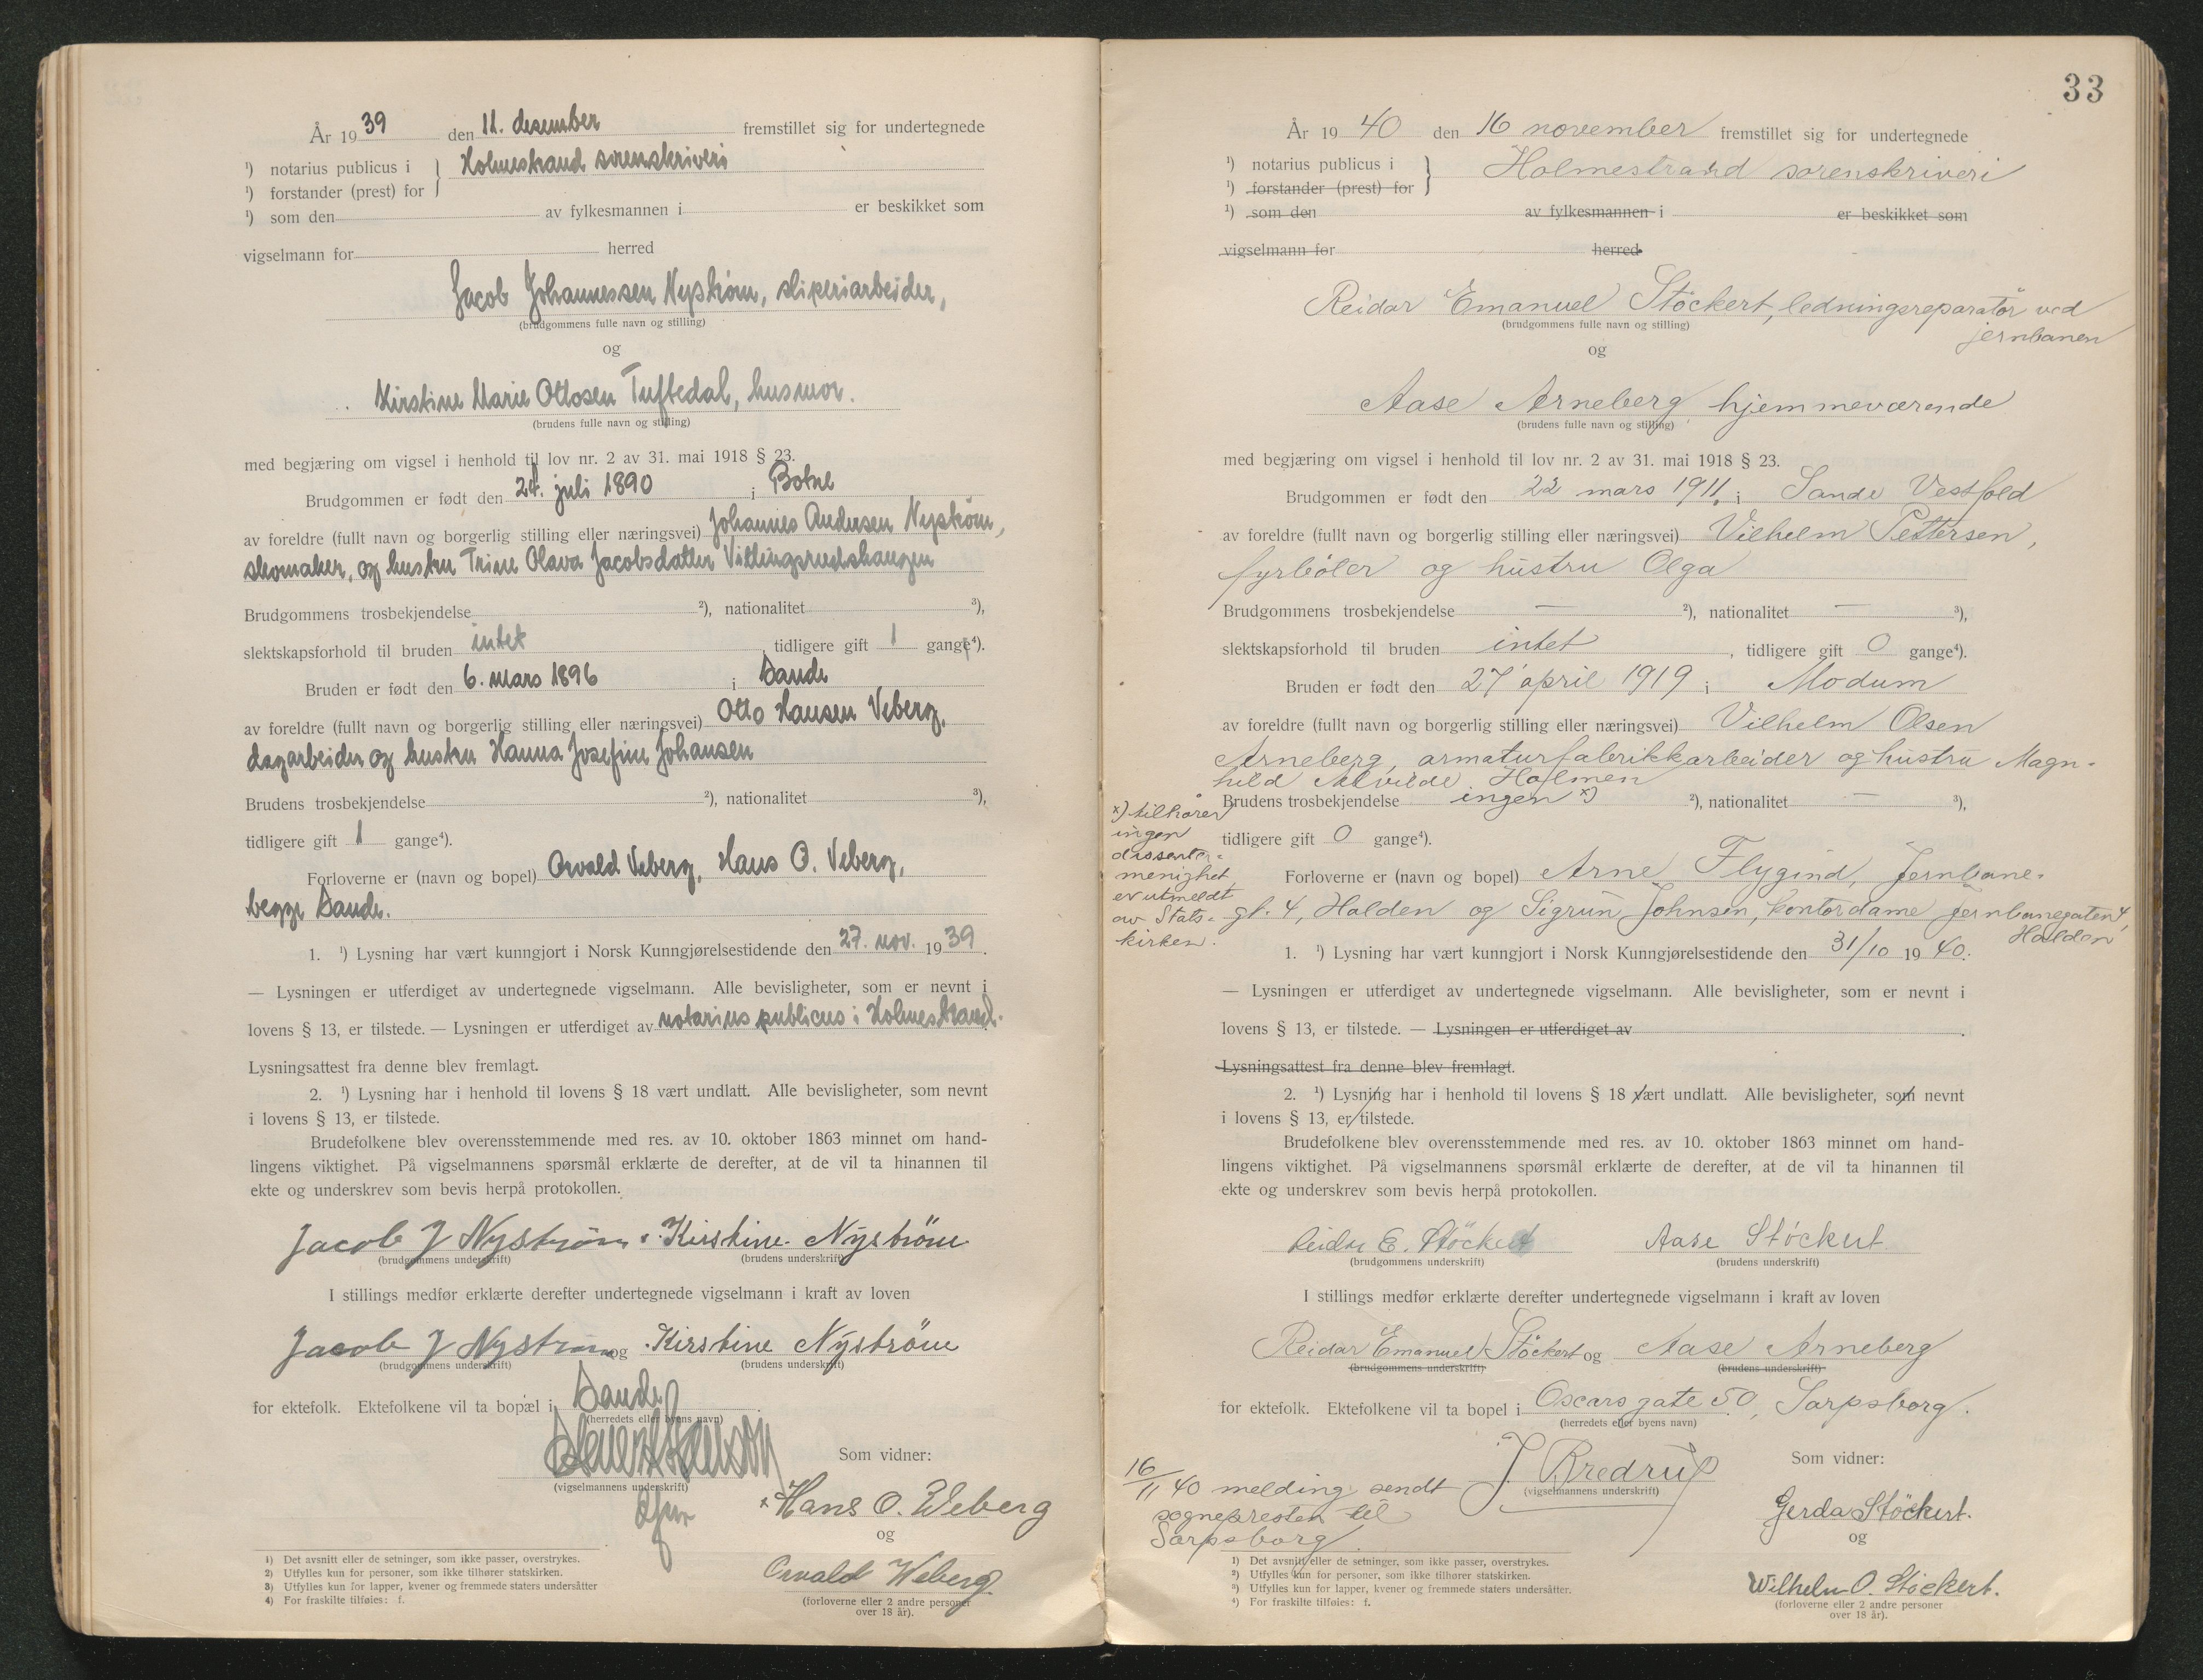 År 19 39 den 11. desember fremstillet sig for undertegnede
¹) notarius publicus i } Holmestrand sorenskriveri
¹) forstander (prest) for
¹) som den av fylkesmannen i er beskikket som
vigselmann for herred
Jacob Johannessen Nystrøm, sliperiarbeider,
(brudgommens fulle navn og stilling)
og
Kirstine Marie Ottosen Tuftedal, husmor.
(brudens fulle navn og stilling)
med begjæring om vigsel i henhold til lov nr. 2 av 31. mai 1918 § 23.
Brudgommen er født den 24. juli 1890 i Botne
av foreldre (fullt navn og borgerlig stilling eller næringsvei) Johannes Andersen Nystrøm,
skomaker, og hustru Trine Olava Jacobsdatter
Brudgommens trosbekjendelse ²), nationalitet ³),
slektskapsforhold til bruden intet, tidligere gift 1 gange⁴).
Bruden er født den 6. mars 1896 i Sande
av foreldre (fullt navn og borgerlig stilling eller næringsvei) Otto Hansen Veberg,
dagarbeider og hustru Hanna Josefine Johansen
Brudens trosbekjendelse ²), nationalitet ³),
tidligere gift 1 gange⁴).
Forloverne er (navn og bopel) Osvald Veberg, Hans O. Veberg,
begge Sande.
1. ¹) Lysning har vært kunngjort i Norsk Kunngjørelsestidende den 27. nov. 19 39.
— Lysningen er utferdiget av undertegnede vigselmann. Alle bevisligheter, som er nevnt i
lovens § 13, er tilstede. — Lysningen er utferdiget av notarius publicus i Holmestrand.
Lysningsattest fra denne blev fremlagt.
2. ¹) Lysning har i henhold til lovens § 18 vært undlatt. Alle bevisligheter, som nevnt
i lovens § 13, er tilstede.
Brudefolkene blev overensstemmende med res. av 10. oktober 1863 minnet om hand-
lingens viktighet. På vigselmannens spørsmål erklærte de derefter, at de vil ta hinannen til
ekte og underskrev som bevis herpå protokollen.
Jacob J Nystrøm Kirstine Nyström
(brudgommens underskrift) (brudens underskrift)
I stillings medfør erklærte derefter undertegnede vigselmann i kraft av loven
Jacob J Nystrøm og Kirstine Nyström
(brudgommens underskrift) (brudens underskrift)
for ektefolk. Ektefolkene vil ta bopæl i Sande
(herredets eller byens navn)
Som vidner:
(vigselmannens underskrift)
Hans O. Weberg
og
Osvald Weberg
(forloverne eller 2 andre personer
over 18 år).
1) Det avsnitt eller de setninger, som ikke passer, overstrykes.
2) Utfylles kun for personer, som ikke tilhører statskirken.
3) Utfylles kun for lapper, kvener og fremmede staters undersåtter
4) For fraskilte tilføies: f.
33
År 19 40 den 16 november fremstillet sig for undertegnede
¹) notarius publicus i } Holmestrand sorenskriveri
¹) forstander (prest) for
¹) som den av fylkesmannen i er beskikket som
vigselmann for herred
Reidar Emanuel Stöckert, ledningsreparatör ved
jernbanen
(brudgommens fulle navn og stilling)
og
Aase Arneberg hjemmeværende
(brudens fulle navn og stilling)
med begjæring om vigsel i henhold til lov nr. 2 av 31. mai 1918 § 23.
Brudgommen er født den 22 mars 1911, i Sande Vestfold
av foreldre (fullt navn og borgerlig stilling eller næringsvei) Vilhelm Pettersen,
fyrbøter og hustru Olga
Brudgommens trosbekjendelse — ²), nationalitet — ³),
slektskapsforhold til bruden intet, tidligere gift 0 gange⁴).
Bruden er født den 27 april 1919 i Modum
av foreldre (fullt navn og borgerlig stilling eller næringsvei) Vilhelm Olsen
Arneberg, armaturfabrikkarbeider og hustru Magn-
hild Alvilde Holmen
Brudens trosbekjendelse ingen x) ²), nationalitet — ³),
x) tilhører
ingen
dissenter-
menighet
er utmeldt
av Stats-
kirken.
tidligere gift 0 gange⁴).
Forloverne er (navn og bopel) Arne Flygind, Jernbane-
gt. 4, Halden og Sigrun Johnsen, kontordame Jernbanegaten 4,
Halden
1. ¹) Lysning har vært kunngjort i Norsk Kunngjørelsestidende den 31/10 19 40.
— Lysningen er utferdiget av undertegnede vigselmann. Alle bevisligheter, som er nevnt i
lovens § 13, er tilstede. — Lysningen er utferdiget av
Lysningsattest fra denne blev fremlagt.
2. ¹) Lysning har i henhold til lovens § 18 vært undlatt. Alle bevisligheter, som nevnt
i lovens § 13, er tilstede.
Brudefolkene blev overensstemmende med res. av 10. oktober 1863 minnet om hand-
lingens viktighet. På vigselmannens spørsmål erklærte de derefter, at de vil ta hinannen til
ekte og underskrev som bevis herpå protokollen.
Reidar E. Stöckert Aase Stöckert
(brudgommens underskrift) (brudens underskrift)
I stillings medfør erklærte derefter undertegnede vigselmann i kraft av loven
Reidar Emanuel Stöckert og Aase Arneberg
(brudgommens underskrift) (brudens underskrift)
for ektefolk. Ektefolkene vil ta bopel i Oscarsgate 50, Sarpsborg.
(herredets eller byens navn)
Som vidner:
16/11 40 melding sendt
sognepresten til
Sarpsborg.
J. Bredrup
(vigselmannens underskrift)
Gerda Stöckert.
og
Wilhelm O. Stöckert.
(forloverne eller 2 andre personer
over 18 år).
¹) Det avsnitt eller de setninger, som ikke passer, overstrykes.
²) Utfylles kun for personer, som ikke tilhører statskirken.
³) Utfylles kun for lapper, kvener og fremmede staters undersåtter.
⁴) For fraskilte tilføies: f.